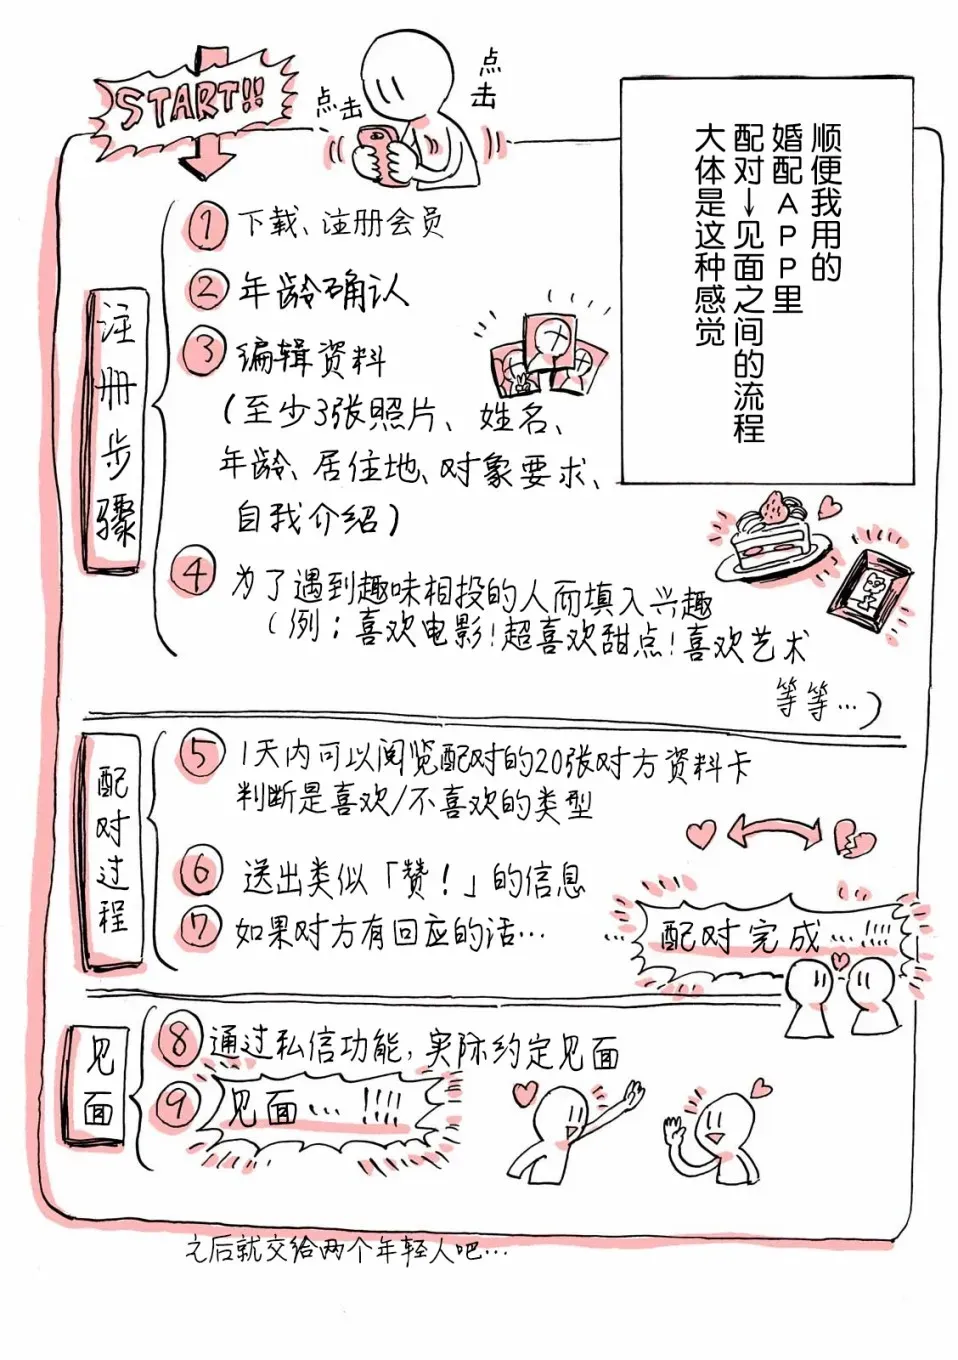 START!!
点击
点击
顺便我用的
婚配APP里
配对→见面之间的流程
大体是这种感觉
注册步骤
① 下载、注册会员
② 年龄确认
③ 编辑资料
(至少3张照片、姓名、
年龄、居住地、对象要求、
自我介绍)
④ 为了遇到趣味相投的人而填入兴趣
(例:喜欢电影!超喜欢甜点!喜欢艺术
等等…)
配对过程
⑤ 1天内可以阅览配对的20张对方资料卡
判断是喜欢/不喜欢的类型
⑥ 送出类似「赞!」的信息
⑦ 如果对方有回应的话…
…配对完成…!!!!
见面
⑧ 通过私信功能,实际约定见面
⑨ 见面…!!!!
之后就交给两个年轻人吧…